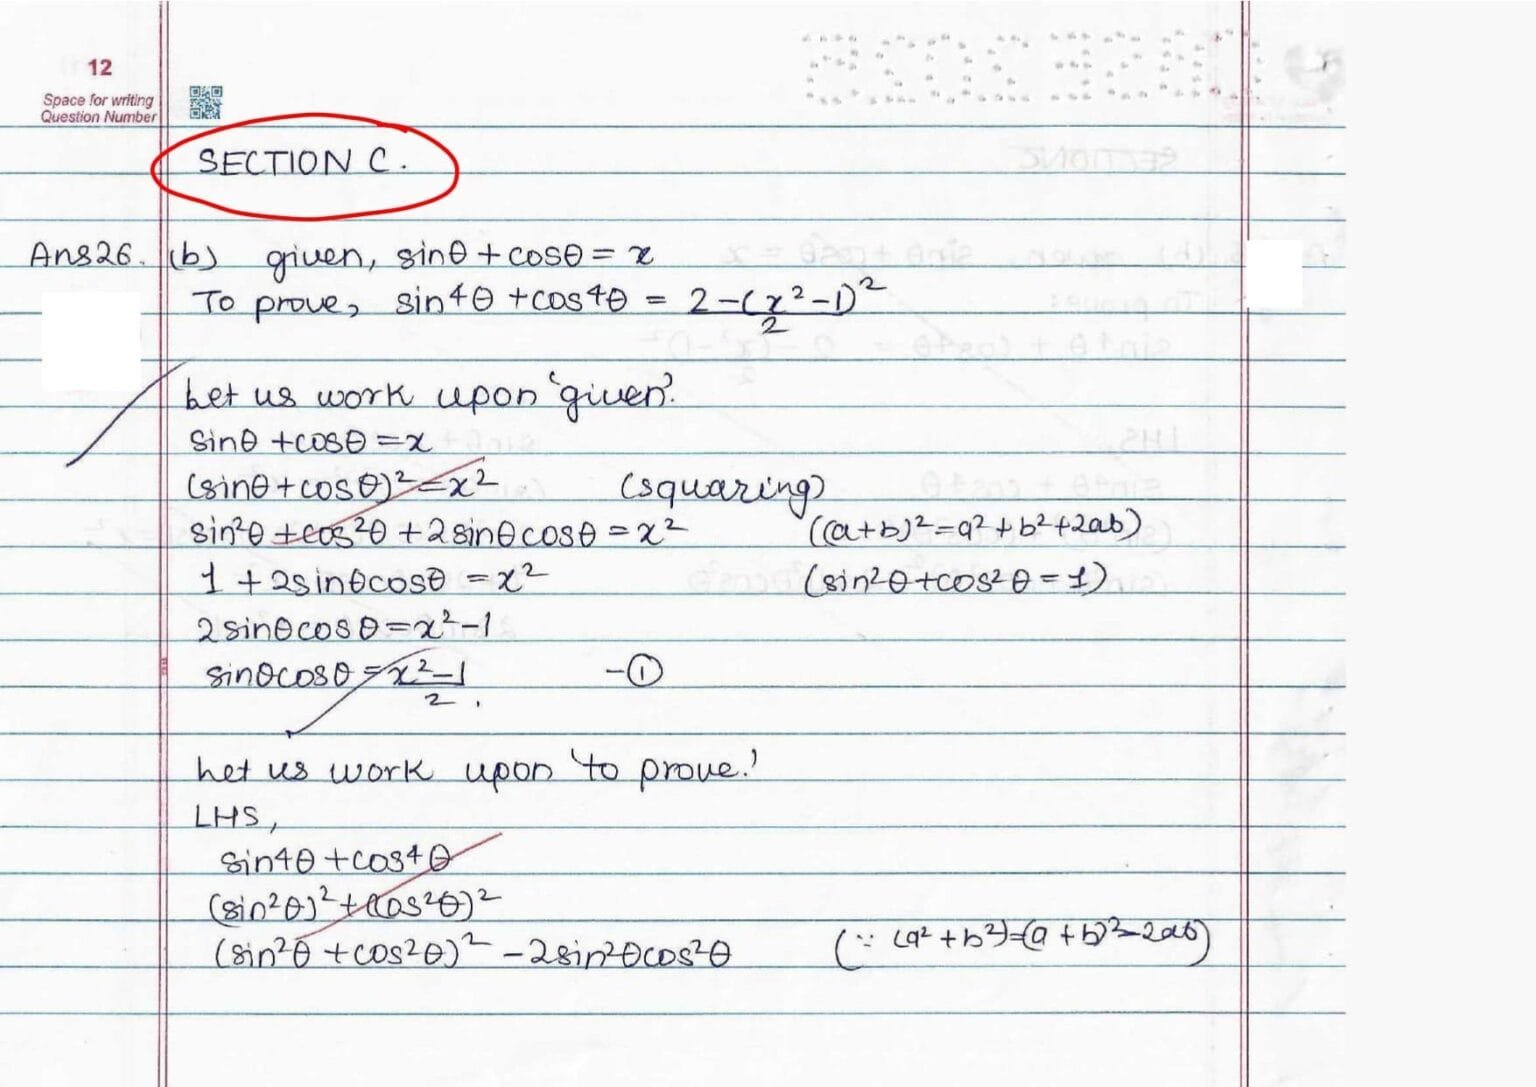 12
Space for writing
Question Number
SECTION C.
Ans26. (b) given, sinθ + cosθ = x
To prove, sin4θ + cos4θ = 2-(x²-1)²
2
Let us work upon 'given'.
sinθ + cosθ = x
(sinθ + cosθ)² = x² (squaring)
sin²θ + cos²θ + 2sinθcosθ = x² ((a+b)² = a² + b² + 2ab)
1 + 2sinθcosθ = x² (sin²θ + cos²θ = 1)
2sinθcosθ = x²-1
sinθcosθ = x²-1 -①
2 .
Let us work upon 'to prove.'
LHS,
sin4θ + cos4θ
(sin²θ)² + (cos²θ)²
(sin²θ + cos²θ)² - 2sin²θcos²θ (∵ (a² + b²) = (a + b)² - 2ab)